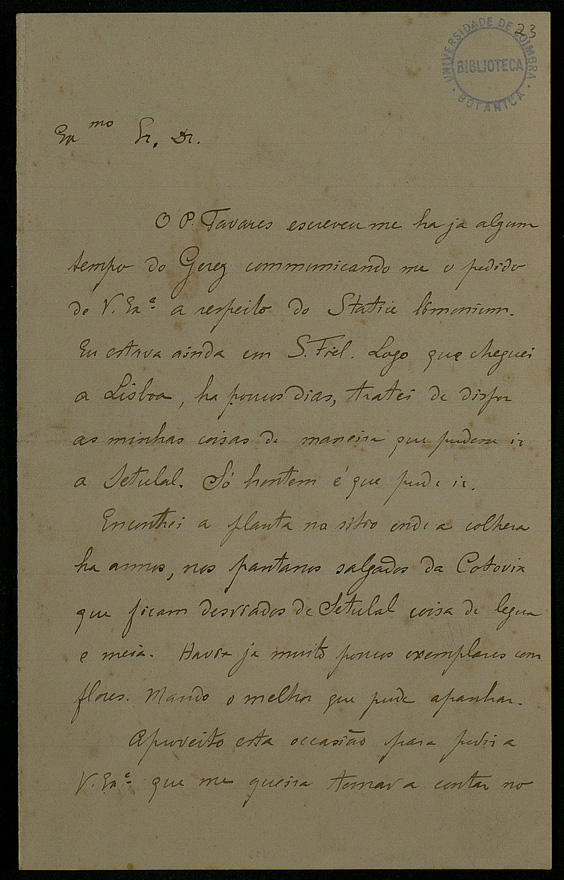 23
UNIVERSIDADE DE COIMBRA
BIBLIOTECA
BOTANICA
Ex.mo Sr. Dr.
O P. Tavares escreveu me ha ja algum
tempo do Gerez communicando me o pedido
de V. Ex.ª a respeito do Statice limonium.
Eu estava ainda em S. Fiel. Logo que cheguei
a Lisboa, ha poucos dias, tratei de dispor
as minhas coisas de maneira que pudesse ir
a Setubal. Só hontem é que pude ir.
Encontrei a planta no sitio onde a colhera
ha annos, nos pantanos salgados da Cotovia
que ficam desviados de Setubal coisa de legua
e meia. Havia ja muito poucos exemplares com
flores. Mando o melhor que pude apanhar.
Aproveito esta occasião para pedir a
V. Ex.ª que me queira tornar a contar no